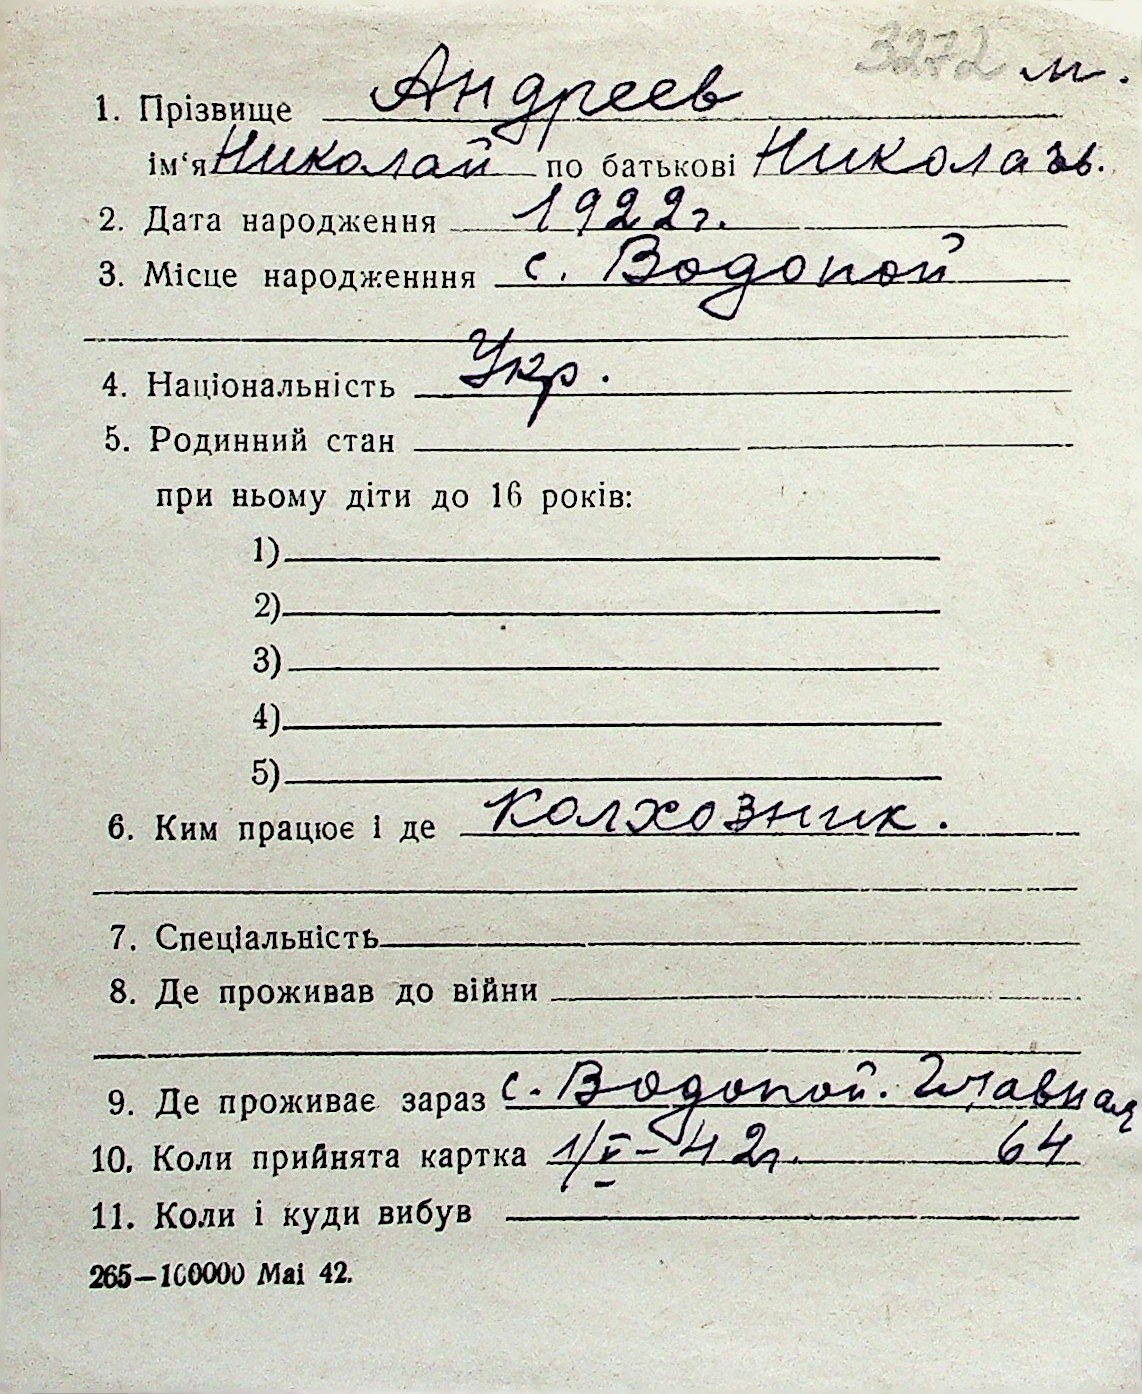 3272 м.
1. Прізвище Андреев
ім‘я Николай по батькові Николаев.
2. Дата народження 1922 г.
3. Місце народженння с. Водопой
4. Національність Укр.
5. Родинний стан
при ньому діти до 16 років:
1)
2)
3)
4)
5)
6. Ким працює і де Колхозник.
7. Спеціальність
8. Де проживав до війни
9. Де проживає зараз с. Водопой. Главная
10. Коли прийнята картка 1/V-42г. 64
11. Коли і куди вибув
265—100000 Mai 42.